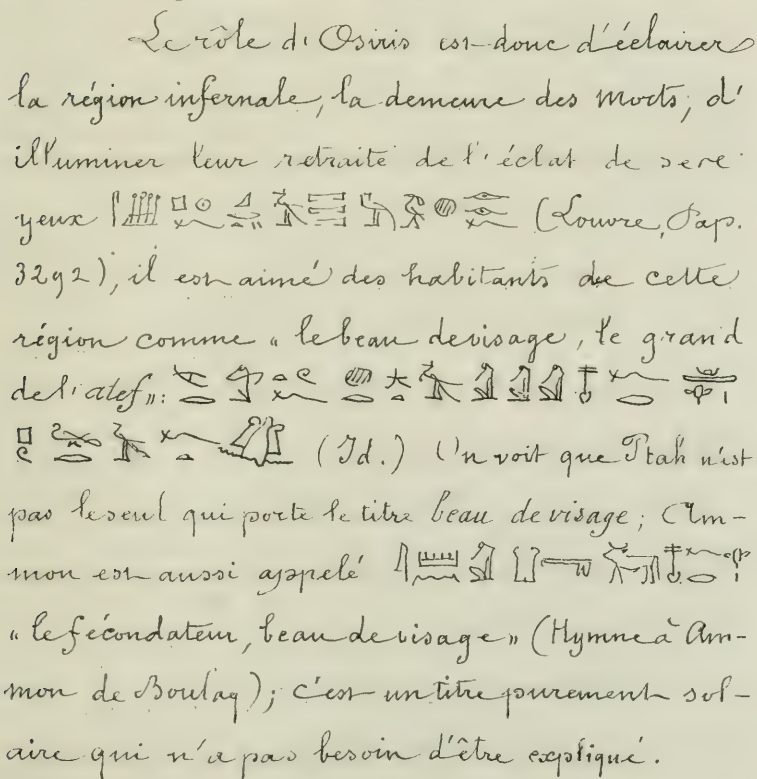 Le rôle d'Osiris est donc d'éclairer
la région infernale, la demeure des morts, d'
illuminer leur retraite de l'éclat de ses
yeux (Louvre, Pap.
3292), il est aimé des habitants de cette
région comme « le beau de visage, le grand
de l'atef »: 
(Id.) On voit que Ptah n'est
pas le seul qui porte le titre beau de visage; Am-
mon est aussi appelé
« le fécondateur, beau de visage » (Hymne à Am-
mon de Boulaq); c'est un titre purement sol-
aire qui n'a pas besoin d'être expliqué.